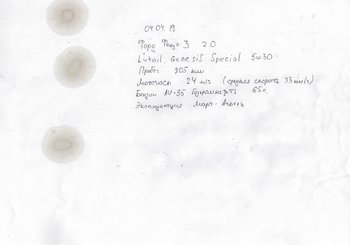 04.04.19
Форд Фокус 3 2.0
Lukoil Genesis Special 5w30
Пробег 805 км
Моточасы 24 м/ч (средняя скорость 33 км/ч)
Бензин АИ-95 Газпромнефть 65л.
Эксплуатация Март-Апрель